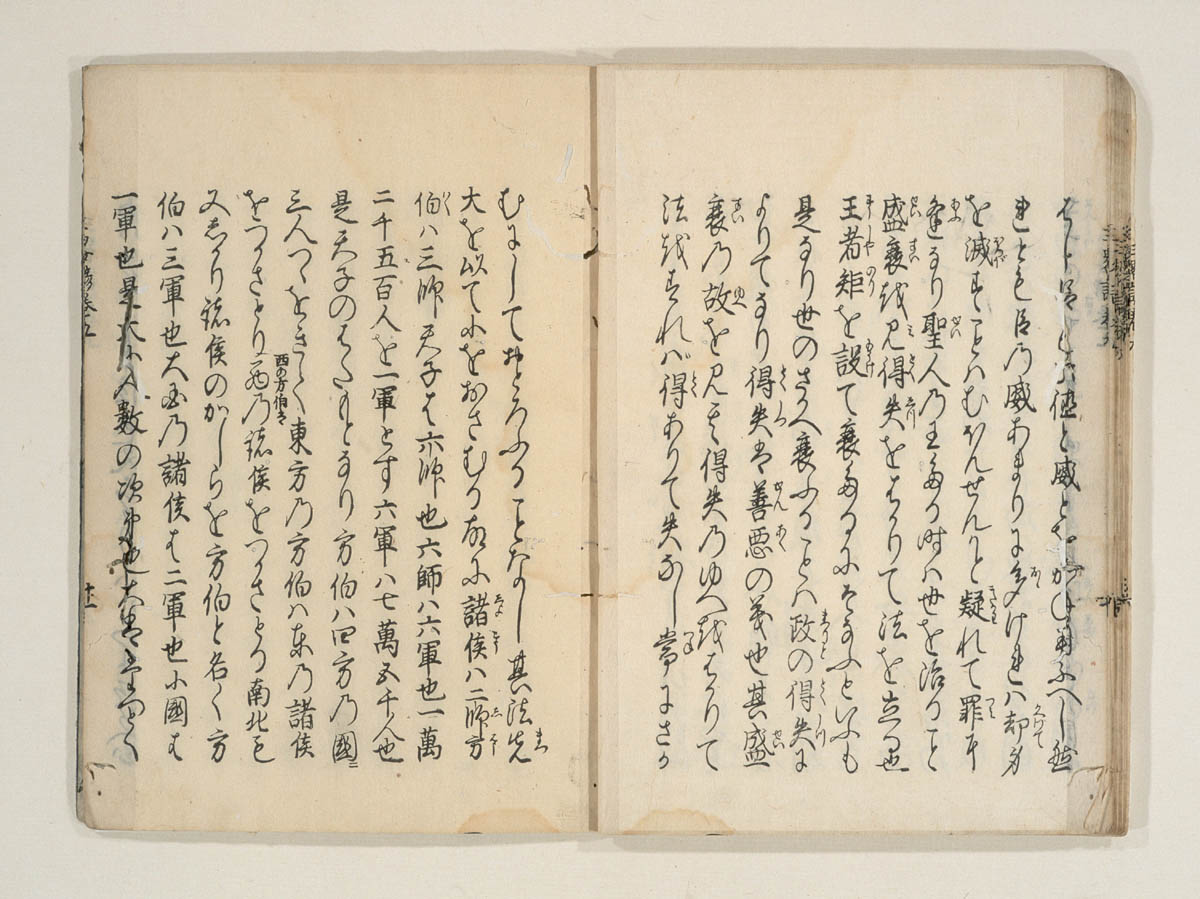 はしと居して徳と威とをかね用ふへし然
れとも臣乃威あまりにふけれハ却身
を滅すことハむほんせんかと疑れて罪に
逢なり聖人乃王たる時ハ世を治ること
盛衰を見得失をはかりて法を立る也
王者矩を設て衰たるにそなふといふも
是なり世のさかへ衰ふることハ政の得失に
よりてなり得失は善悪の義也其盛
衰乃故を見て得失乃ゆへをはかりて
法をすれハ得ありて失なし常にさか
むにしておとろふることなし其法先
大を以て小をおさむる故に諸侯ハ二師方
伯ハ三師天子は六師也六師ハ六軍也一萬
二千五百人を一軍とす六軍ハ七萬五千人也
是天子のはたもとなり方伯ハ四方乃國ニ
三人つゝをきて東方乃方伯ハ東乃諸侯
をつかさとり西の方伯は西乃諸侯をつかさとる南北も
又しかり諸侯のかしらを方伯と名く方
伯ハ三軍也大国乃諸侯は二軍也小國は
一軍也是大小人数の次第也
十一